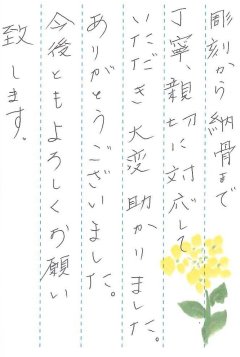 彫刻から納骨まで
丁寧、親切に対応して
いただき大変助かりました。
ありがとうございました。
今後ともよろしくお願い
致します。